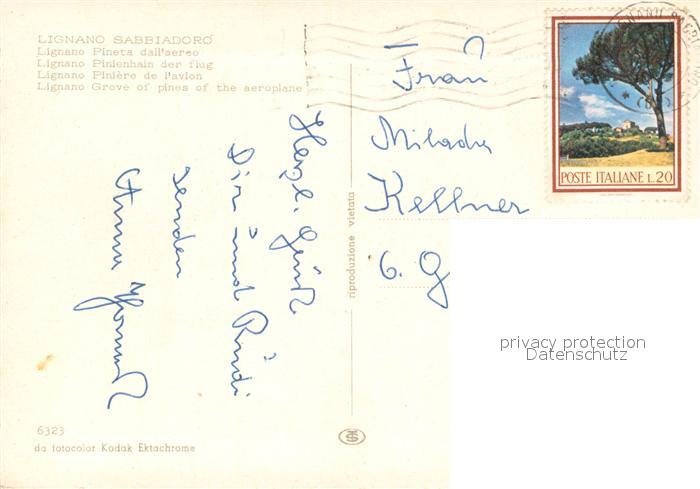 LIGNANO SABBIADORO
Lignano Pineta dall'aereo
Lignano Pinienhain der flug
Lignano Pinière de l'avion
Lignano Grove of pines of the aeroplane
Herzl. Grüße
Dir und Rudi
senden
Anna
Frau
Milada
Kellner
6. G
riproduzione vietata
POSTE ITALIANE L.20
privacy protection
Datenschutz
6323
da fotocolor Kodak Ektachrome